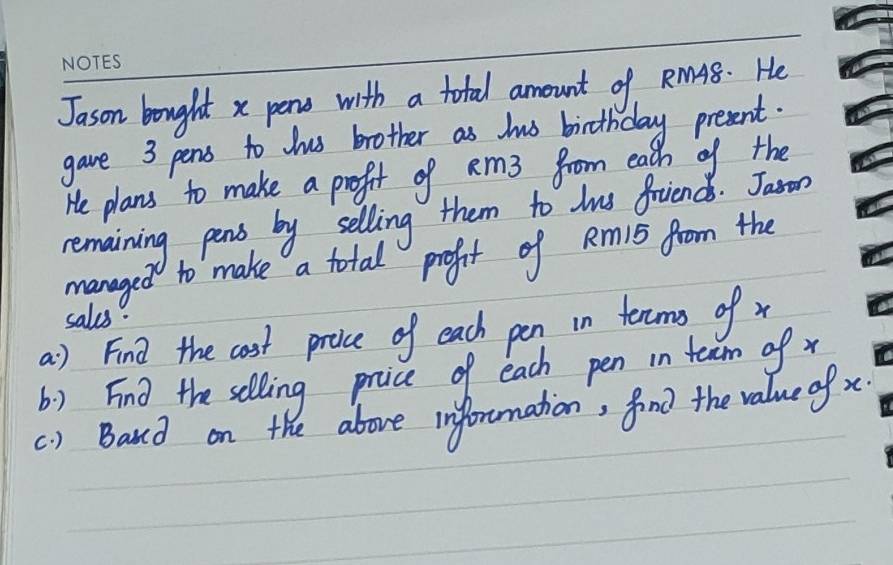 NOTES
Jason bought x pens with a total amount of RM48. He
gave 3 pens to his brother as his birthday present.
He plans to make a profit of RM3 from each of the
remaining pens by selling them to his friends. Jason
managed to make a total profit of RM15 from the
sales.
a.) Find the cost price of each pen in terms of x
b.) Find the selling price of each pen in term of x
c.) Based on the above information, find the value of x.